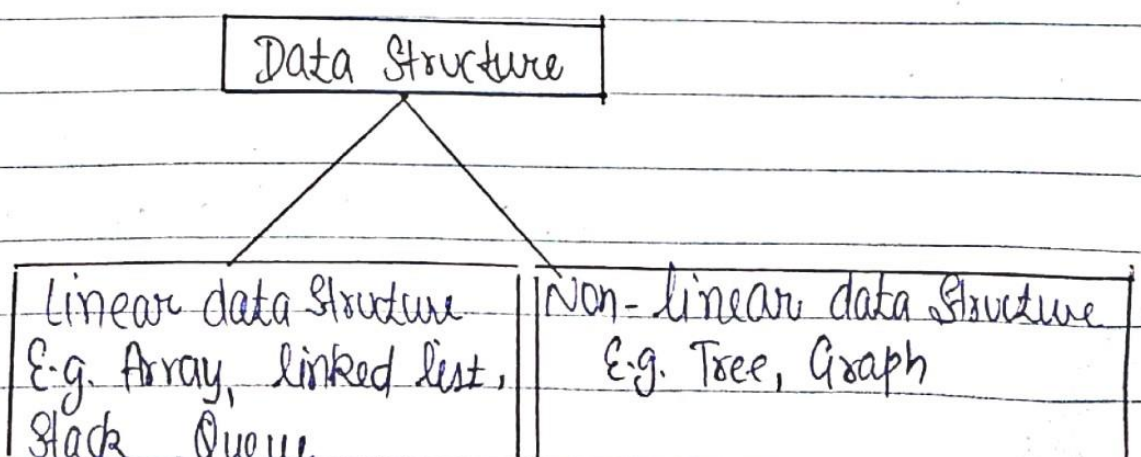 Data Structure
Linear data Structure
E.g. Array, linked list,
Stack Queue
Non-linear data Structure
E.g. Tree, Graph